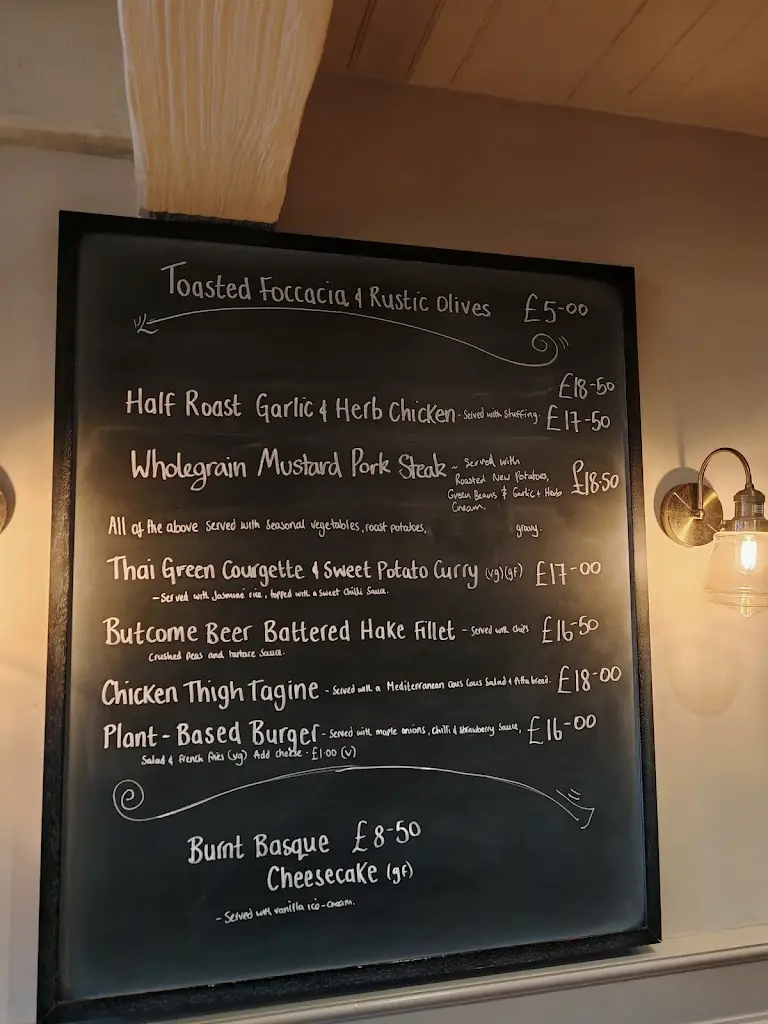 Toasted Foccacia & Rustic Olives £5-00
£18-50
Half Roast Garlic & Herb Chicken - Served with Stuffing. £17-50
Wholegrain Mustard Pork Steak ~ Served with £18.50
Roasted New Potatoes,
Green Beans & Garlic + Herb
Cream.
All of the above served with seasonal vegetables, roast potatoes, gravy.
Thai Green Courgette & Sweet Potato Curry (vg)(gf) £17-00
- Served with Jasmine rice, topped with a sweet Chilli Sauce.
Butcome Beer Battered Hake Fillet - Served with chips £16-50
Crushed Peas and tartare Sauce.
Chicken Thigh Tagine - Served with a Mediterranean Cous Cous Salad & Pitta bread. £18-00
Plant-Based Burger - Served with maple onions, chilli & Strawberry Sauce, £16-00
Salad & French fries (vg) Add cheese - £1.00 (v)
Burnt Basque £8-50
Cheesecake (gf)
- Served with vanilla ice-cream.